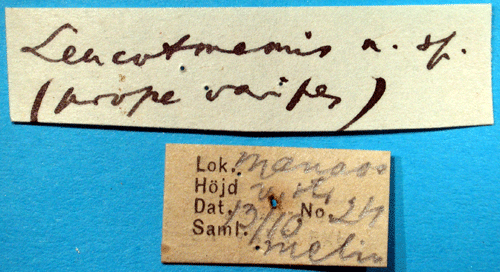 Leucotmemis n. sp.
(prope varipes)
Lok. Manaos
Höjd
Dat. 13/10 No. 24
Saml. Melin